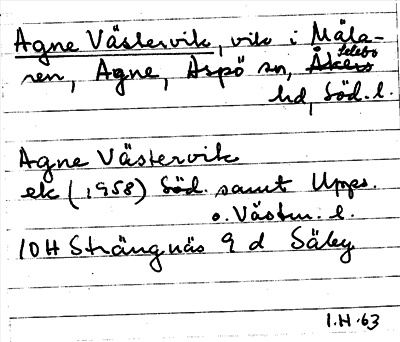 Agne Västervik, vik i Mäla-
ren, Agne, Aspö sn, Åkers Selebo
hd, Söd. l.
Agne Västervik
ek (1958) Söd. samt Upps.
o. Västm. l.
10H Strängnäs 9 d Säby
I.H. 63